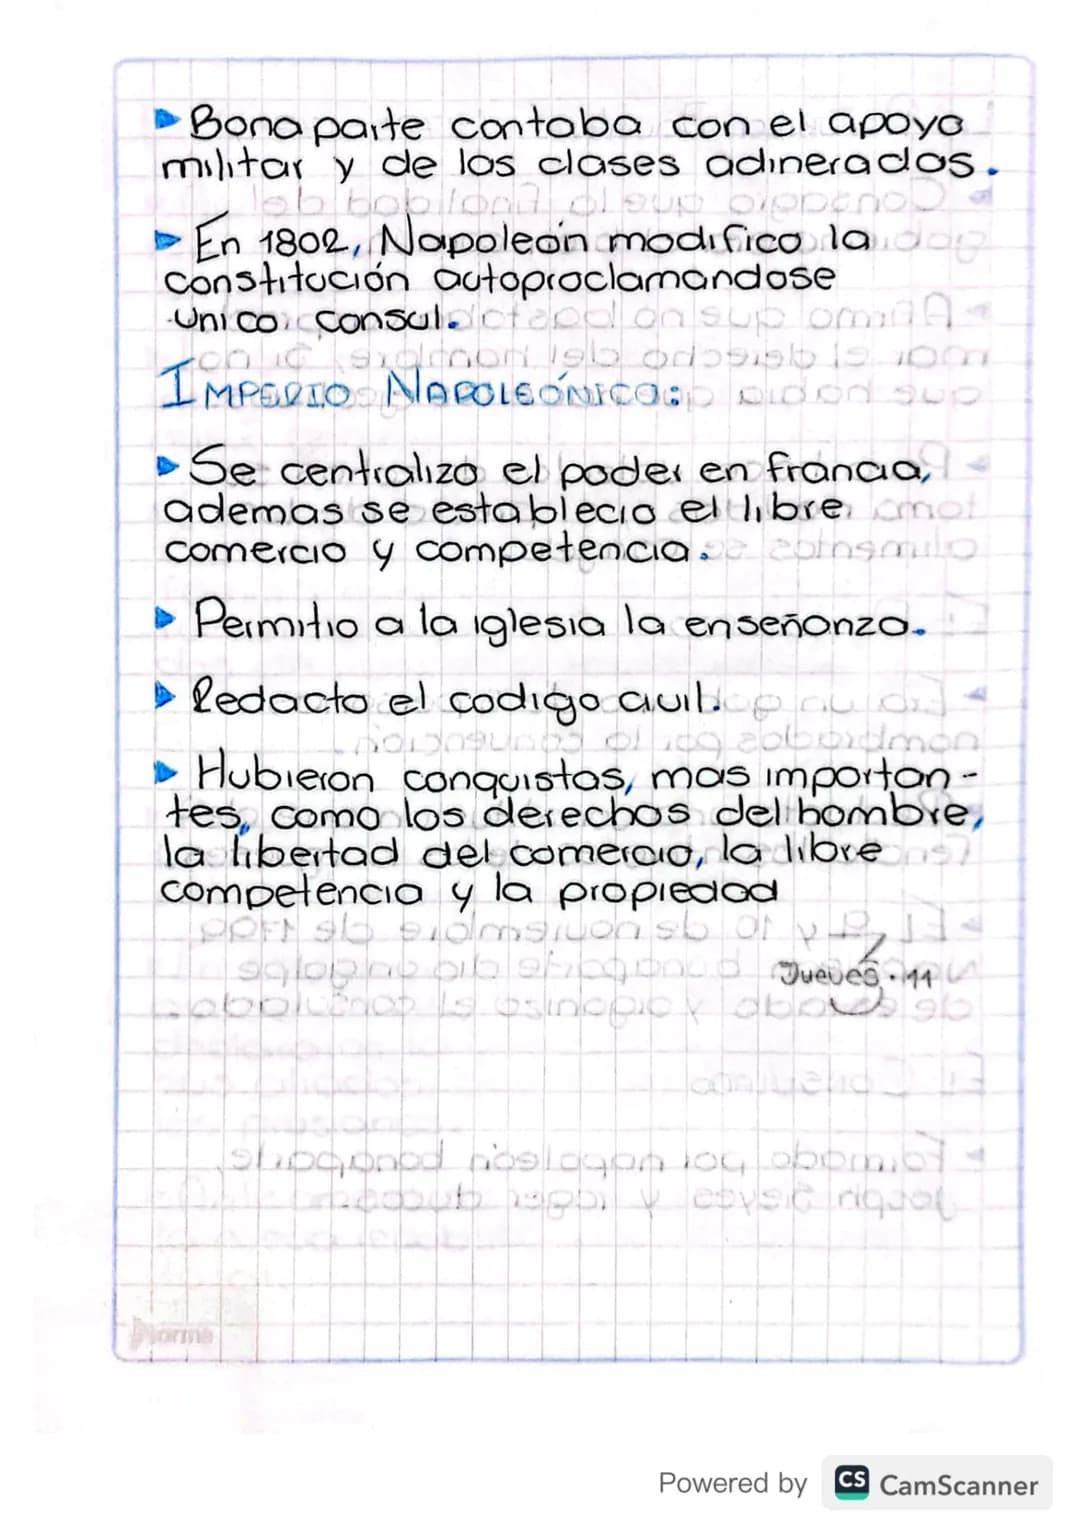 Bonaparte contaba con el apoyo
militar y de las clases adineradas.
En 1802, Napoleón modifico la
constitución autoproclamandose
Unico consul.
IMPERIO NAPOLEÓNICO:
Se centralizo el poder en francia,
ademas se establecio el libre
comercio y competencia.
Permitio a la iglesia la enseñanza.
Redacto el codigo civil.
Hubieron conquistas, mas importan-
tes, como los derechos del hombre,
la libertad del comercio, la libre
competencia y la propiedad
Jueves. 11
Norma
Powered by CS CamScanner